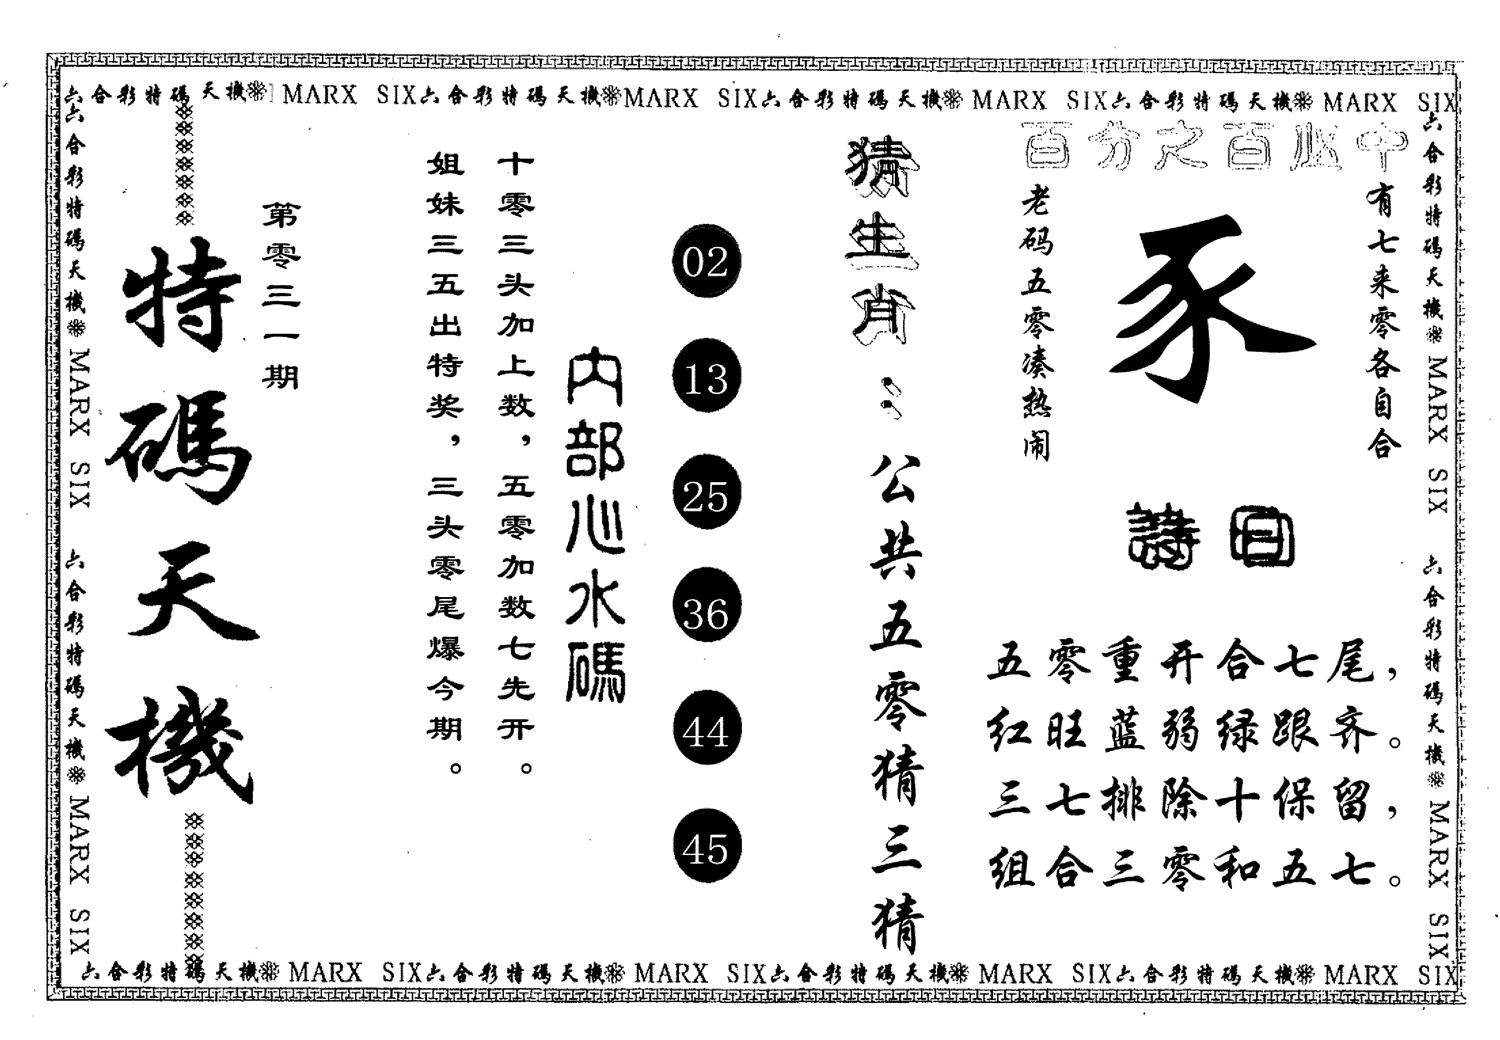 六合彩特碼天機 MARX SIX六合彩特碼天機 MARX SIX六合彩特碼天機 MARX SIX六合彩特碼天機 MARX SIX
百分之百必中
有七来零各自合
豕
老码五零凑热闹
詩曰
五零重开合七尾，
红旺蓝弱绿跟齐。
三七排除十保留，
组合三零和五七。
猜生肖：公共五零猜三猜
02
13
25
36
44
45
内部心水碼
十零三头加上数，五零加数七先开。
姐妹三五出特奖，三头零尾爆今期。
第零三一期
特碼天機
六合彩特碼天機 MARX SIX 六合彩特碼天機 MARX SIX
六合彩特碼天機 MARX SIX 六合彩特碼天機 MARX SIX
六合彩特碼天機 MARX SIX六合彩特碼天機 MARX SIX六合彩特碼天機 MARX SIX六合彩特碼天機 MARX SIX